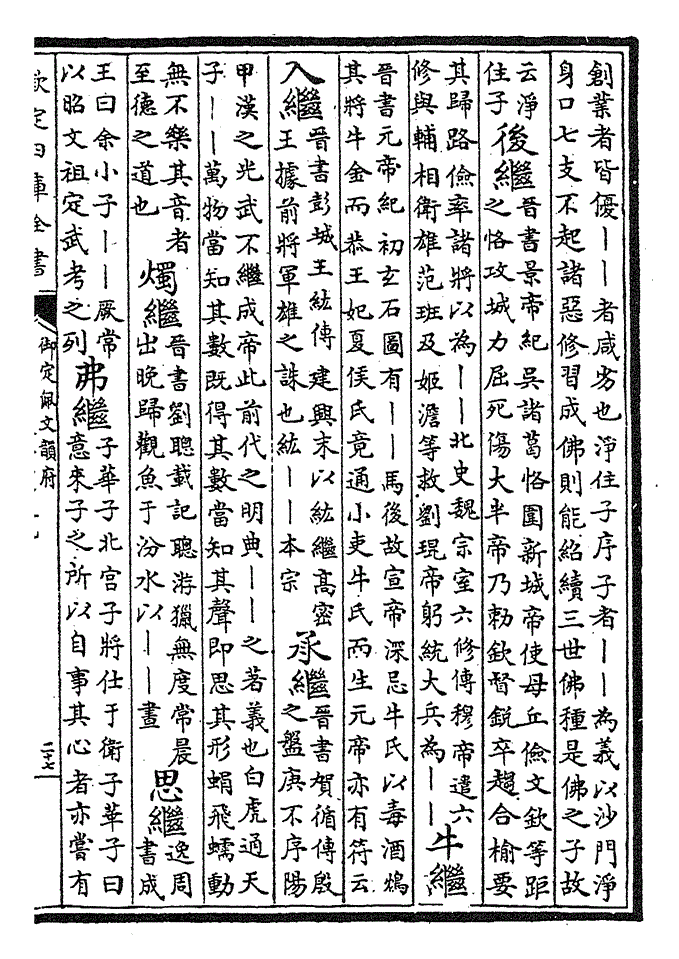 創業者皆優丨丨者咸劣也淨住子序子者丨丨為義以沙門淨
身口七支不起諸惡修習成佛則能紹續三世佛種是佛之子故
云淨
住子
後繼
晉書景帝紀吳諸葛恪圍新城帝使毋丘儉文欽等距
之恪攻城力屈死傷大半帝乃勅欽督銳卒趨合榆要
其歸路儉率諸將以為丨丨北史魏宗室六修傳穆帝遣六
修與輔相衛雄范班及姬澹等救劉琨帝躬統大兵為丨丨
牛繼
晉書元帝紀初玄石圖有丨丨馬後故宣帝深忌牛氏以毒酒鴆
其將牛金而恭王妃夏侯氏竟通小吏牛氏而生元帝亦有符云
入繼
晉書彭城王紘傳建興末以紘繼高密
王據前將軍雄之誅也紘丨丨本宗
承繼
晉書賀循傳殷
之盤庚不序陽
甲漢之光武不繼成帝此前代之明典丨丨之著義也白虎通天
子丨丨萬物當知其數既得其數當知其聲即思其形蜎飛蠕動
無不樂其音者
至德之道也
燭繼
晉書劉聰載記聰游獵無度常晨
出晚歸觀魚于汾水以丨丨晝
思繼
逸周
書成
王曰余小子丨丨厥常
以昭文祖定武考之列
弗繼
子華子北宮子將仕于衛子華子曰
意來子之所以自事其心者亦嘗有
欽定四庫全書
御定佩文韻府
二十七